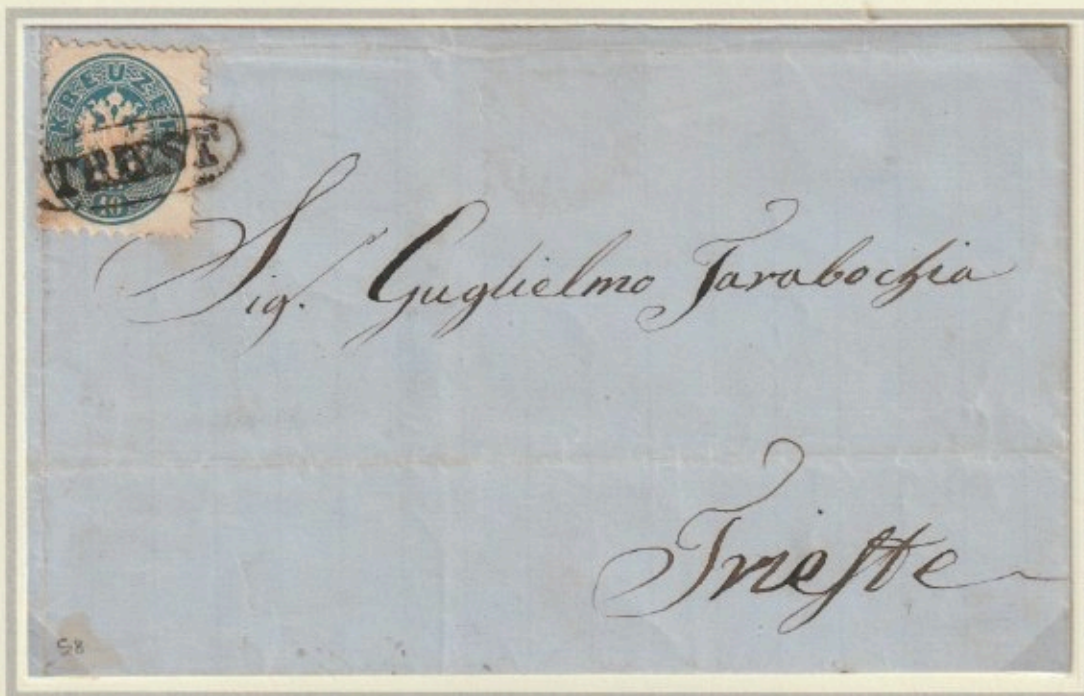 KREUZER
TRIEST
10
Sig. Guglielmo Tarabochia
Trieste
58